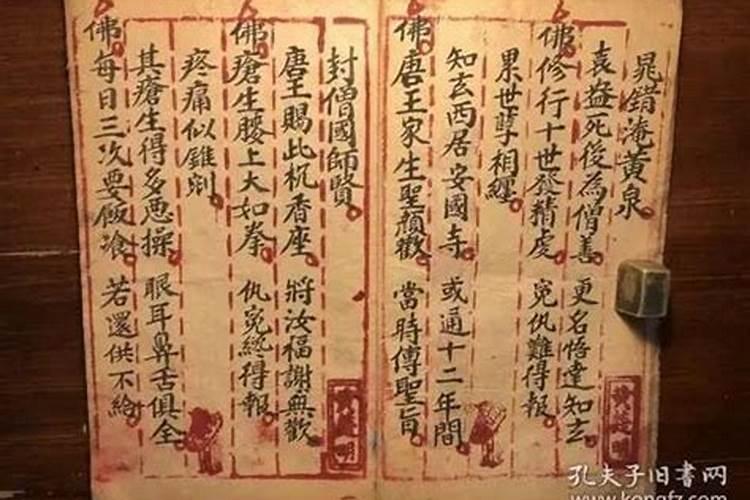 晁錯淹黃泉
袁盎死後為僧善 更名悟達知玄
佛修行十世發精虔 冤仇難得報
累世孽相纏
知玄西居安國寺 或通十二年間
佛唐王家生聖顏歡 當時傳聖旨
封僧國師賢
唐王賜此杌香座 將汝福謝無歡
佛瘡生腰上大如拳 仇冤總得報
疼痛似錐剜
其瘡生得多恶操 眼耳鼻舌俱全
佛每日三次要飯飡 若還供不給
孔夫子旧书网
www.kongfz.com